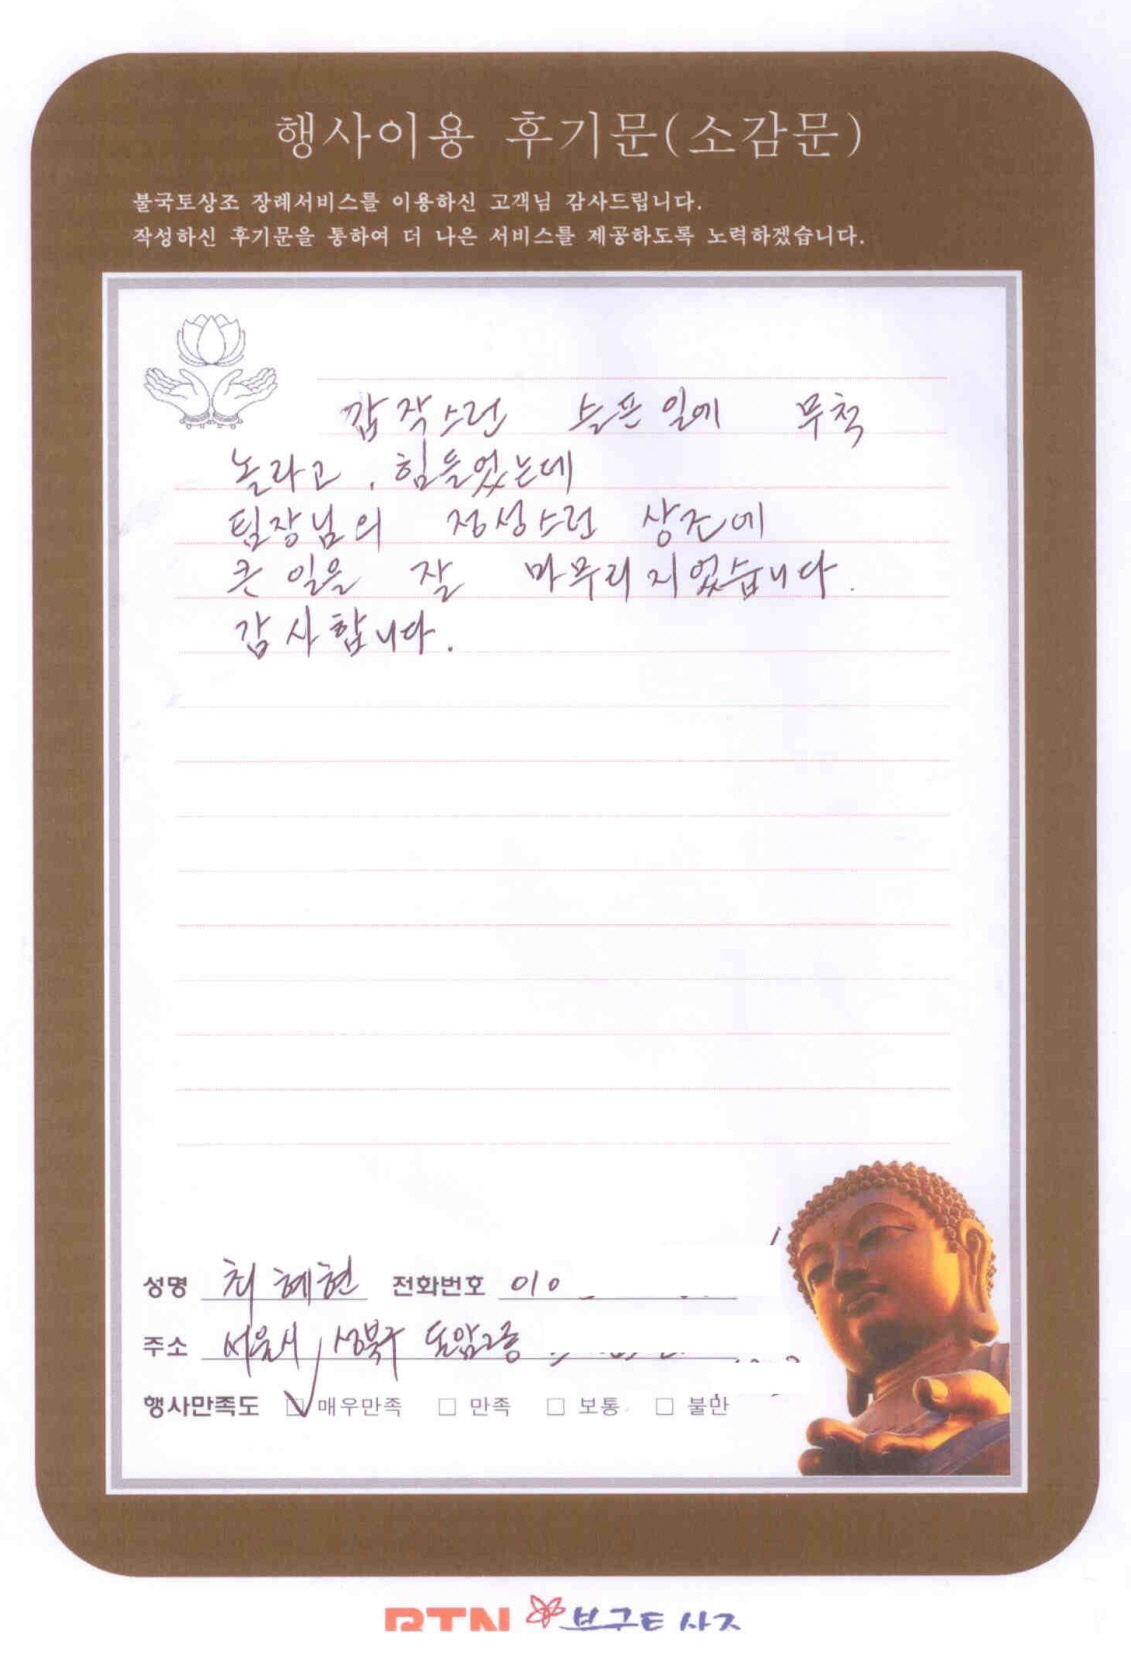 행사이용 후기문(소감문)
불국토상조 장례서비스를 이용하신 고객님 감사드립니다.
작성하신 후기문을 통하여 더 나은 서비스를 제공하도록 노력하겠습니다.
갑작스런 슬픈일에 무척
놀라고, 힘들었는데
팀장님의 정성스런 상조에
큰 일을 잘 마무리지었습니다.
감사합니다.
성명 최혜현 전화번호 010
주소 서울시, 성북구 돈암2동
행사만족도 ☑ 매우만족 □ 만족 □ 보통 □ 불만
BTN